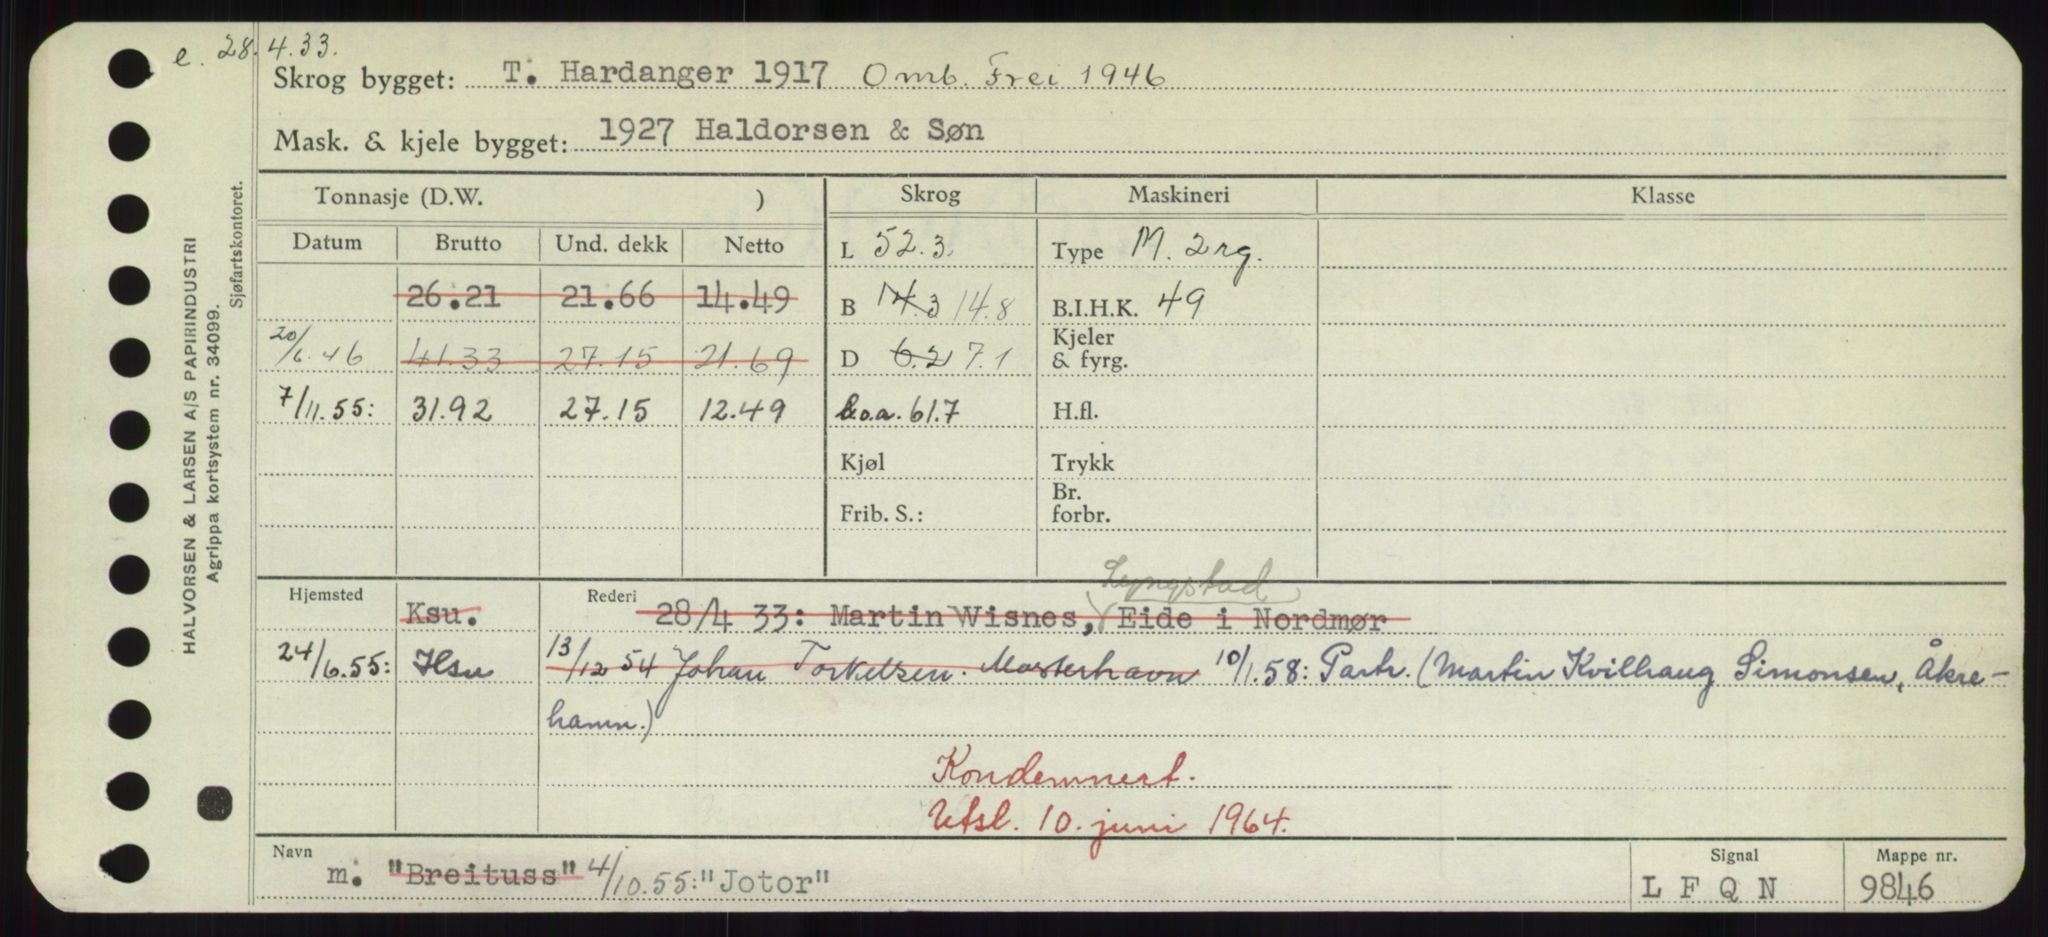 e. 28.4.33.
Skrog bygget: T. Hardanger 1917 Omb. Frei 1946
Mask. & kjele bygget: 1927 Haldorsen & Søn
Tonnasje (D.W. ) Skrog Maskineri Klasse
Datum Brutto Und. dekk Netto L 52.3. Type M. 2 rg.
26.21 21.66 14.49 B 14.3 14.8 B.I.H.K. 49
20/6.46 41.33 27.15 21.69 D 6.2 7.1 Kjeler & fyrg.
7/11.55: 31.92 27.15 12.49 L.o.a. 61.7 H.fl.
Kjøl Trykk
Frib. S.: Br. forbr.
Lyngstad
Hjemsted Ksu. Rederi 28/4 33: Martin Wisnes, Eide i Nordmør
24/6.55: Hsu 13/12 54 Johan Torkelsen. Mosterhavn 10/1.58: Partr. (Martin Kvilhaug Simonsen, Åkre-
hamn.)
Kondemnert.
Utsl. 10. juni 1964.
Navn m: "Breituss" 4/10.55: "Jotor" Signal L F Q N Mappe nr. 9846
HALVORSEN & LARSEN A/S PAPIRINDUSTRI
Agrippa kortsystem nr. 34099.
Sjøfartskontoret.